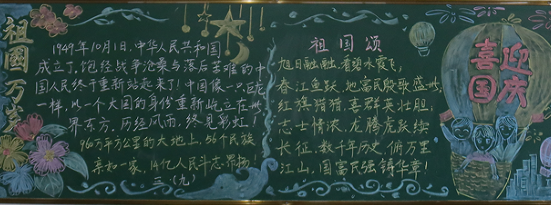 祖国万岁
1949年10月1日,中华人民共和国
成立了。饱经战争沧桑与落后苦难的中
国人民终于重新站起来了!中国像一只巨龙
一样,以一个大国的身份重新屹立在世
界东方,历经风雨,终见彩虹!
960万平方公里的大地上,56个民族
亲如一家,
人民斗志昂扬!
三(九)
祖国颂
旭日融融,
春江鱼跃,地富民殷歌盛世;
红旗猎猎,
群英壮胆,
志士情浓,龙腾虎跃续
长征,数千年历史,俯万里
江山,国富民强铸华章!
喜迎
国庆